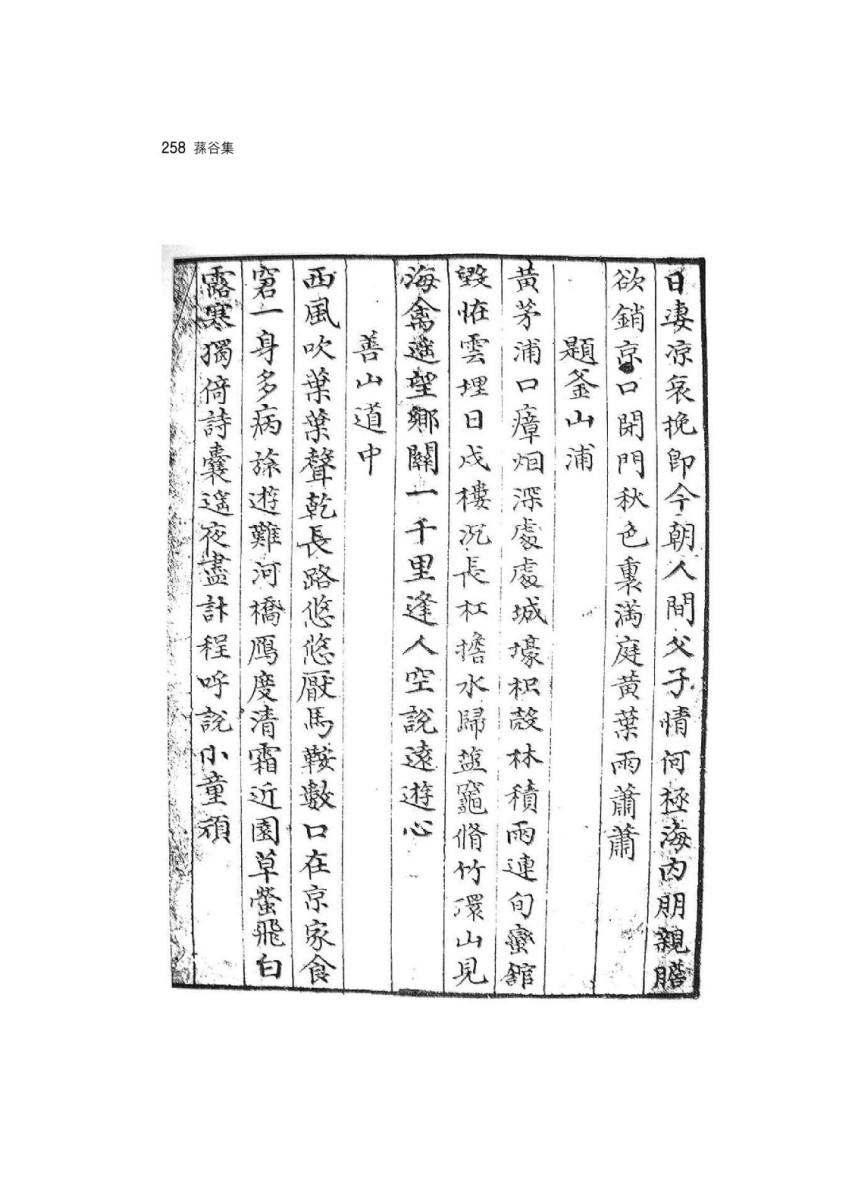 258 蓀谷集
日凄凉哀挽卽今朝人間父子情何極海内朋親膽
欲銷京口閉門秋色裏滿庭黃葉雨蕭蕭
題釜山浦
黃茅浦口瘴烟深處處城壕枳殼林積雨連旬蠻舘
毀恠雲埋日戍樓沉長杠擔水歸盐竈脩竹環山見
海禽遥望鄕關一千里逢人空說遠遊心
善山道中
西風吹葉葉聲乾長路悠悠厭馬鞍數口在京家食
窘一身多病旅遊難河橋鴈度清霜近園草螢飛白
露寒獨倚詩囊遥夜盡計程呼說小童頑